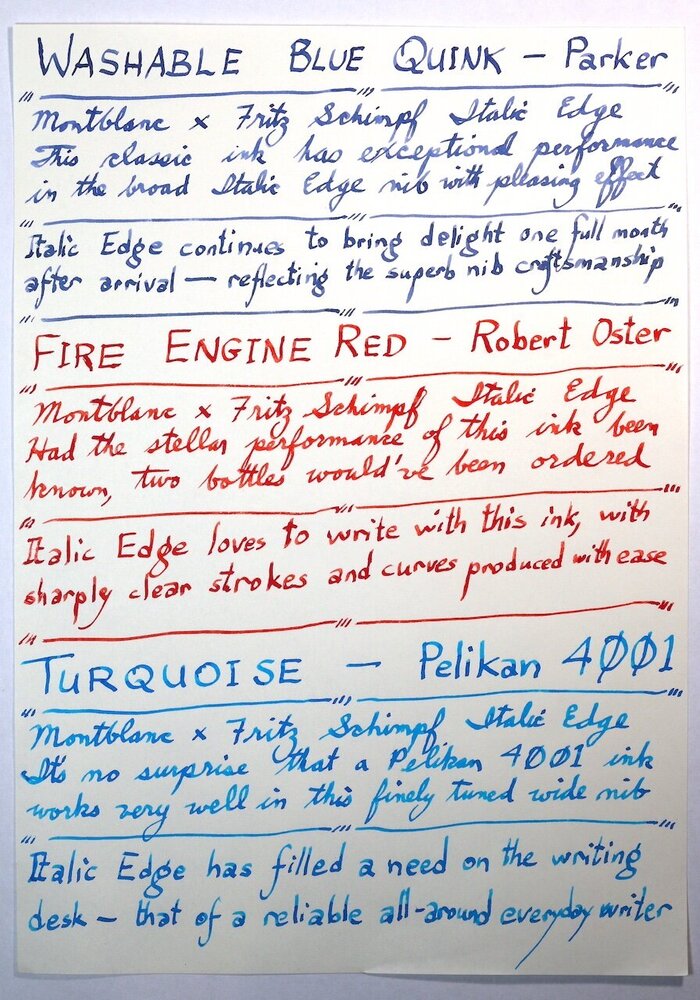 WASHABLE BLUE QUINK – Parker
Montblanc x Fritz Schimpf Italic Edge
This classic ink has exceptional performance
in the broad Italic Edge nib with pleasing effect
Italic Edge continues to bring delight one full month
after arrival — reflecting the superb nib craftsmanship
FIRE ENGINE RED – Robert Oster
Montblanc x Fritz Schimpf Italic Edge
Had the stellar performance of this ink been
known, two bottles would've been ordered
Italic Edge loves to write with this ink, with
sharply clear strokes and curves produced with ease
TURQUOISE — Pelikan 4001
Montblanc x Fritz Schimpf Italic Edge
It's no surprise that a Pelikan 4001 ink
works very well in this finely tuned wide nib
Italic Edge has filled a need on the writing
desk – that of a reliable all-around everyday writer